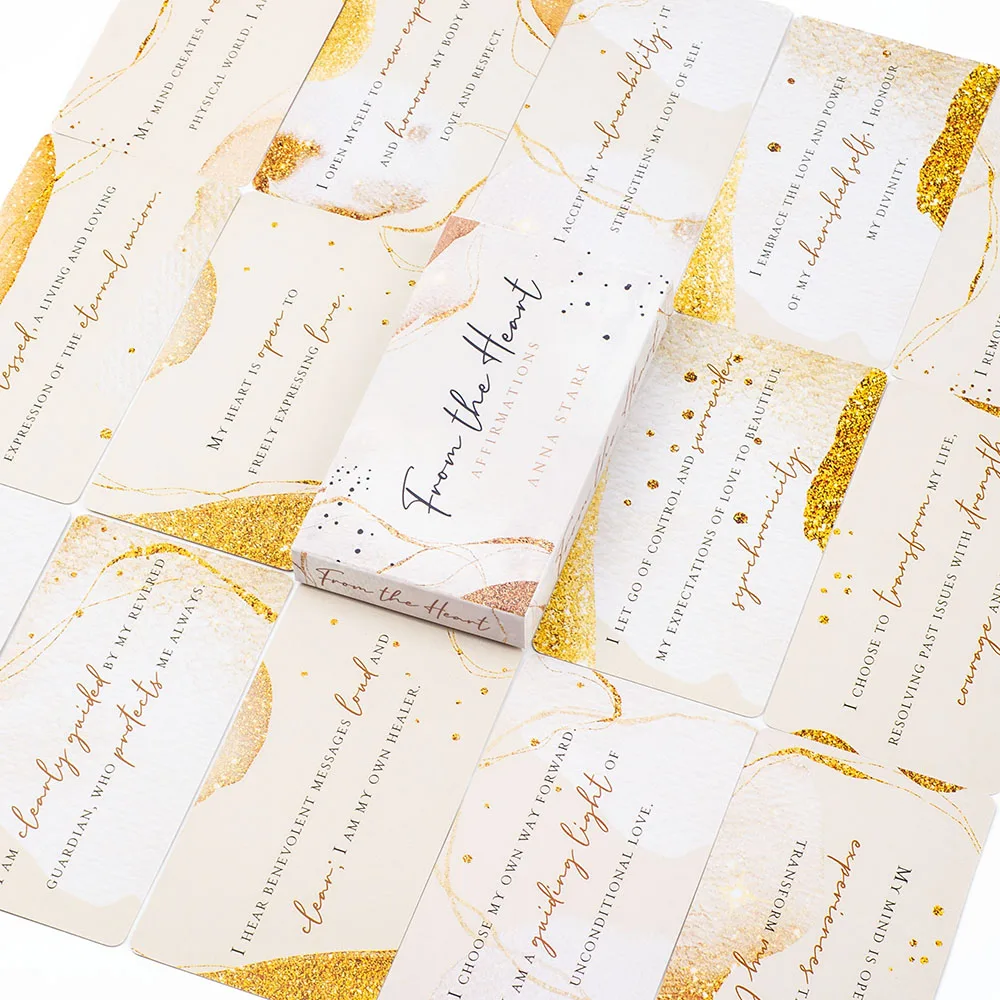 MY MIND CREATES A
PHYSICAL WORLD. I
I OPEN MYSELF TO new
AND honour MY BODY
LOVE AND RESPECT.
I ACCEPT MY vulnerability; IT
STRENGTHENS MY LOVE OF SELF.
I EMBRACE THE LOVE AND POWER
OF MY cherished self. I HONOUR
MY DIVINITY.
A LIVING AND LOVING
EXPRESSION OF THE eternal union
MY HEART IS open TO
FREELY EXPRESSING love.
From the Heart
AFFIRMATIONS
ANNA STARK
From the Heart
I LET GO OF CONTROL AND surrender
MY EXPECTATIONS OF LOVE TO BEAUTIFUL
synchronicity.
I
I CHOOSE TO transform MY LIFE,
RESOLVING PAST ISSUES WITH
courage
I AM clearly guided BY MY REVERED
GUARDIAN, WHO protects ME ALWAYS.
I HEAR BENEVOLENT MESSAGES loud AND
clear; I AM MY OWN HEALER.
I CHOOSE MY OWN WAY FORWARD.
I AM A guiding light OF
UNCONDITIONAL LOVE.
MY MIND IS
experiences
TRANSFORM my